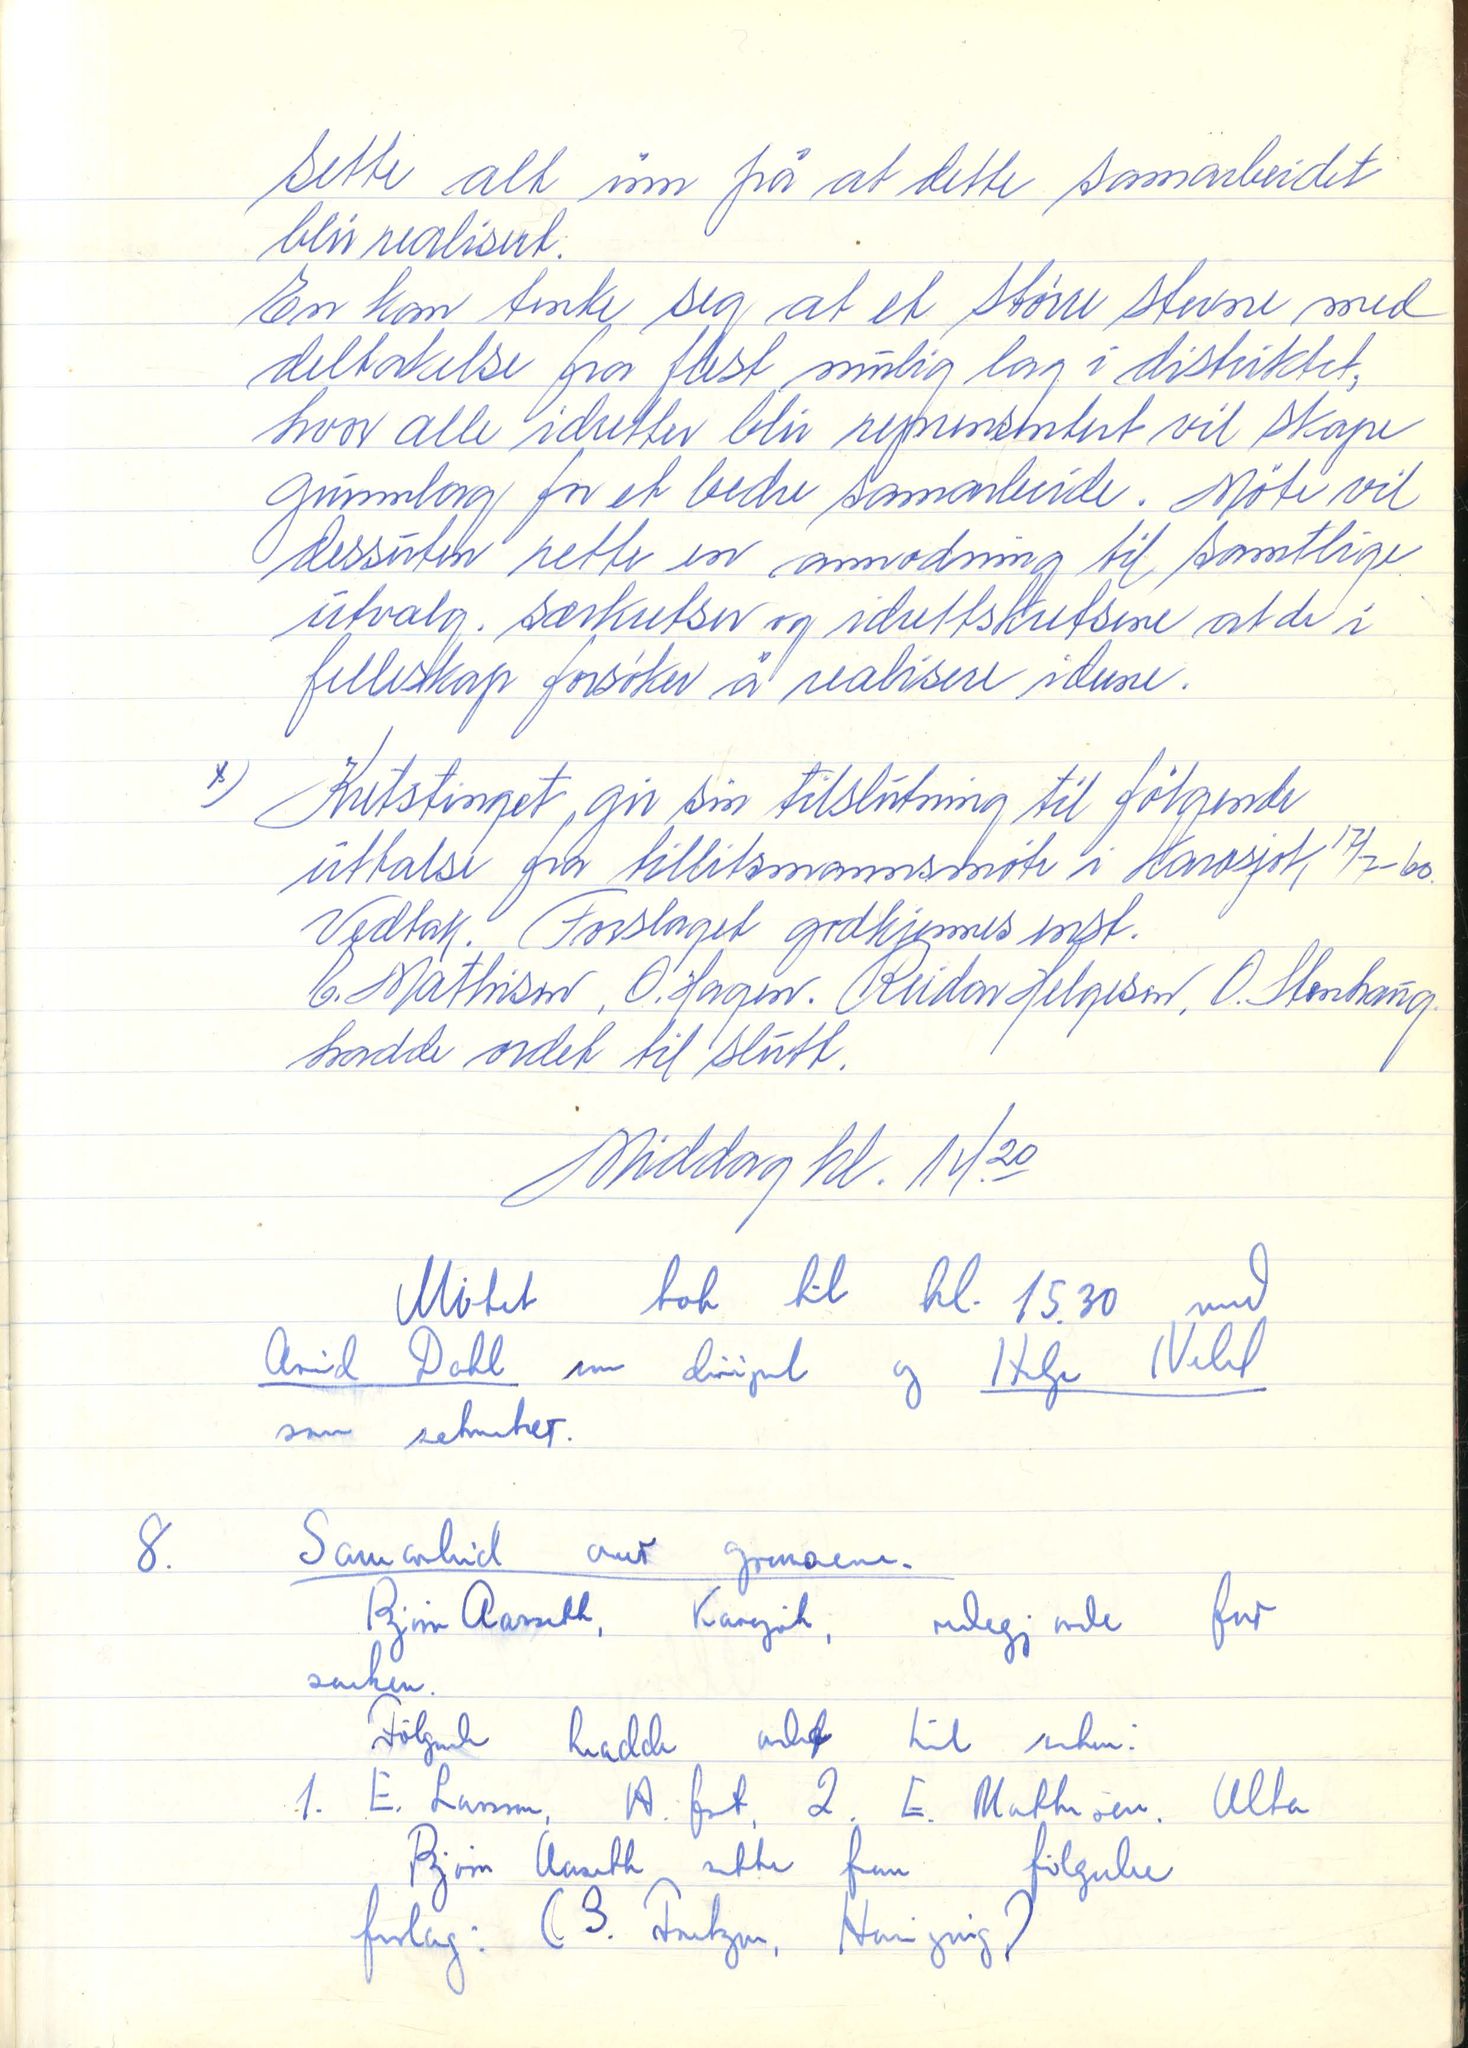 sette alt inn på at dette samarbeidet
blir realisert.
En kan tenke seg at et større stevne med
deltakelse fra flest mulig lag i distriktet,
hvor alle idretter blir representert vil skape
grunnlag for et bedre samarbeide. Møte vil
dessuten rette en anmodning til samtlige
utvalg. særkretser og idrettskretsene at de i
felleskap forsøker å realisere ideene.
x) Kretstinget gir sin tilslutning til følgende
uttalse fra tillitsmannsmøte i Karasjok, 17/7-60.
Vedtak. Forslaget godkjennes enst.
E. Mathisen, O. Hagen. Reidar Helgesen, O. Stenhaug.
hadde ordet til slutt.
Middag kl. 14.20
Møtet tok til kl. 15.30 med
Arvid Dahl som dirigent og Helge
som sekretær.
8. Samarbeid over grensene.
Bjørn Aarseth, Karasjok, redegjorde for
saken.
Følgende hadde ordet til saken:
1. E. Larssen, H. fest, 2. E. Mathisen. Alta
Bjørn Aarseth sette fram følgende
forslag: (3. Fritzen, Honningsvåg)